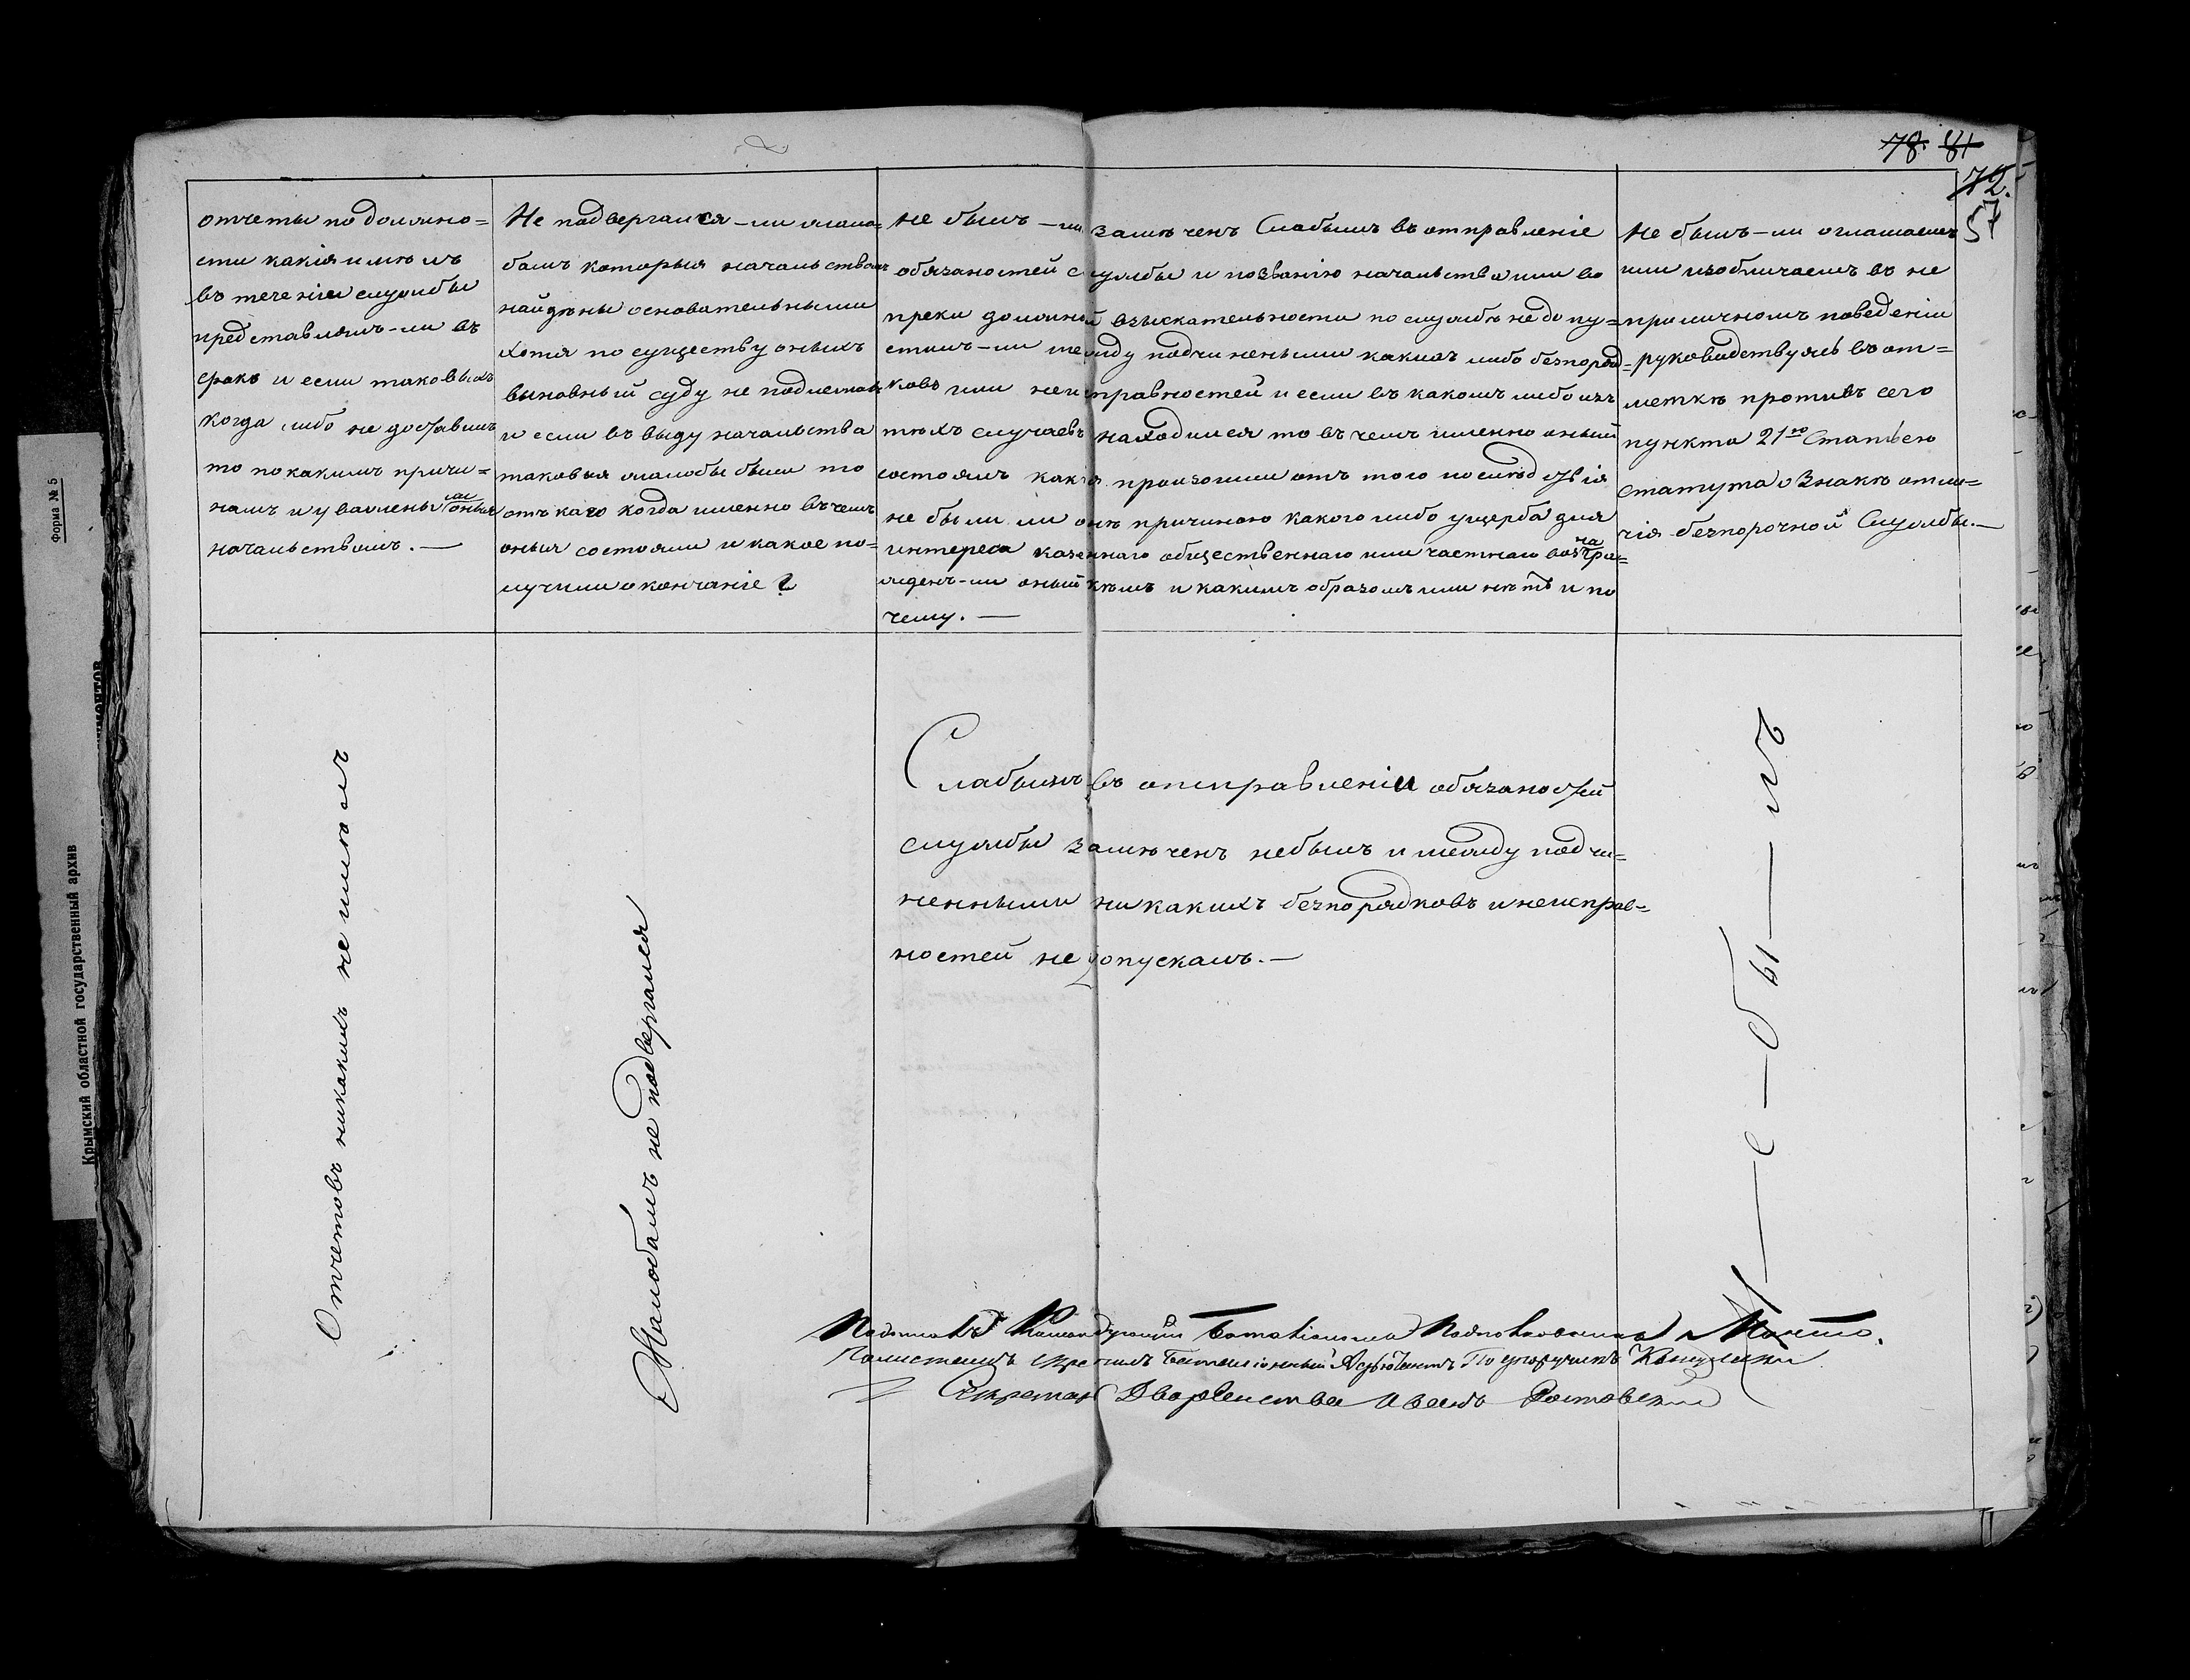 78. 81
72.
57
отчеты по должно=
сти какія имѣлъ
въ теченіи службы
представлялъ-ли въ
срокъ и если таковыхъ
когда либо не доставилъ
то покакимъ причи=
намъ и уважены ли оныя
начальствомъ. —
Не подвергался-ли жало=
бамъ которыя начальствомъ
найдены основательными
хотя по существу оныхъ
выновный суду не подлежалъ
и если въ выду начальства
таковыя жалобы были то
отъ каго когда именно въ чемъ
оныя состояли и какое по=
лучили окончаніе?
не былъ-ли замѣченъ Слабымъ въ отправленіе
обязаностей службы и позванію начальства или во
преки должной взыскательности по службѣ не допу=
стилъ-ли между подчинеными какихъ либо безпоряд=
ковъ или неисправностей и если въ какомъ либо изъ
тѣхъ случаевъ находился то въ чемъ именно оный
состоялъ какія произошли отъ того послѣдствія
не были ли онѣ причиною какого либо ущерба для
интереса казеннаго общественнаго или частнаго вознагра=
жденъ-ли оный кѣмъ и какимъ образомъ или нѣтъ и по
чему. —
Не былъ-ли оглашаемъ
или изобличаемъ въ не
приличномъ поведеніи
руководствуясь въ от=
меткѣ противъ сего
пункта 21ю Статьею
статута о Знакѣ отли=
чія безпорочной Службы. —
Отчетовъ никакихъ не имѣлъ
Жалобамъ не подвергался
Слабымъ въ отправленіи обязаностей
службы замѣченъ небылъ и между подчи=
ненными никакихъ безпорядковъ и неисправ=
ностей не допускалъ. —
Н — е — бы — лъ
Командующій Баталіономъ Подполковникъ
скрепилъ Баталіонный Адъютантъ Подпоручикъ
Секретарь Дворянства Иванъ Ростовскій
Форма № 5
Крымский областной государственный архив